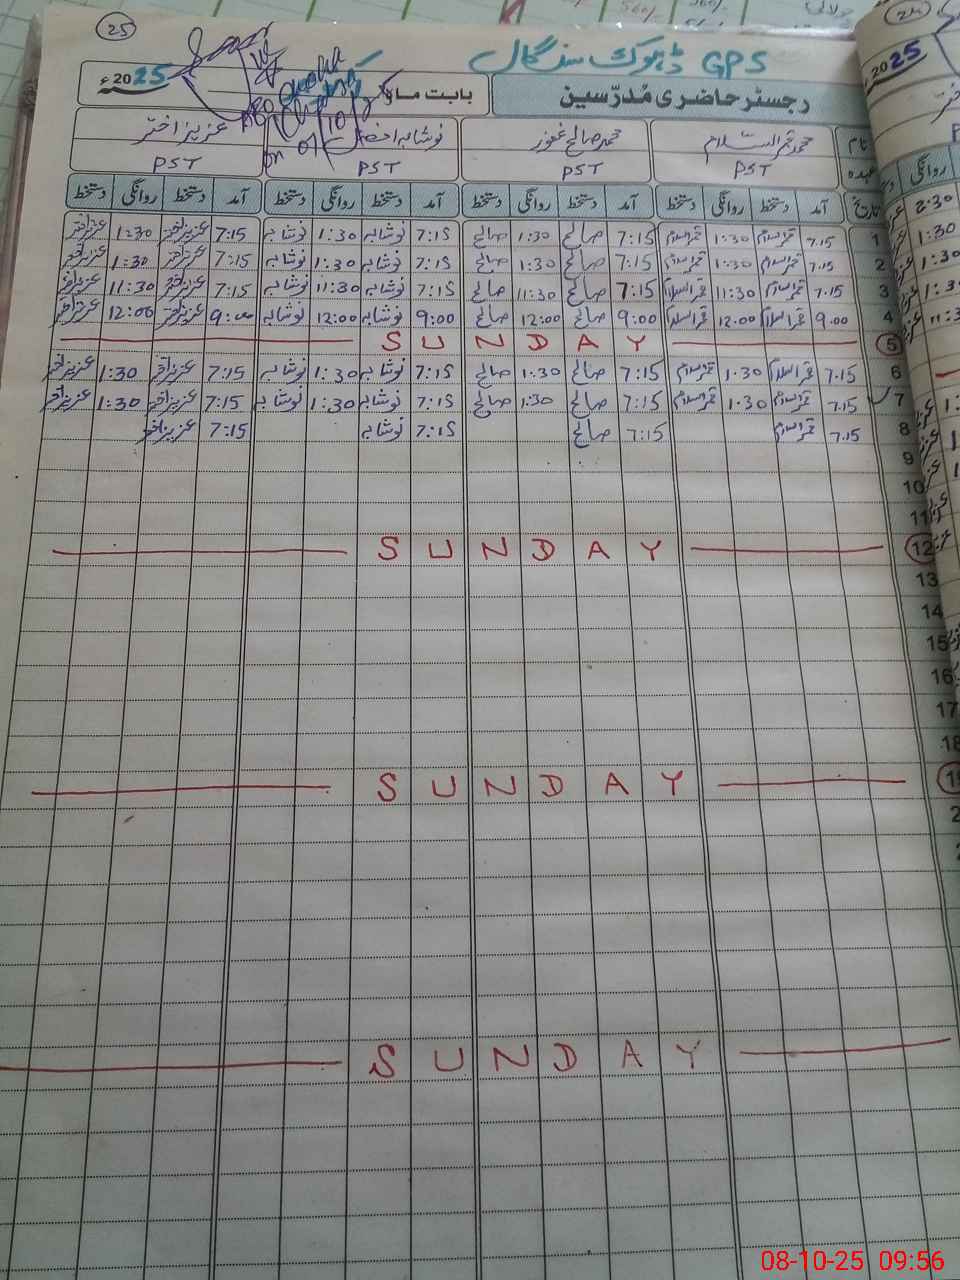 25
GPS ڈہوک سنگال
رجسٹر حاضری مُدرّسین بابت ماہ 2025ء
نام محمد قمر السلام محمد صالح غفور نوشابہ عزیز اختر
عہدہ PST PST PST PST
تاریخ آمد دستخط روانگی دستخط آمد دستخط روانگی دستخط آمد دستخط روانگی دستخط آمد دستخط روانگی دستخط
1 7.15 قمر السلام 1.30 قمر السلام 7:15 صالح 1:30 صالح 7:15 نوشابہ 1:30 نوشابہ 7:15 عزیز اختر 1:30 عزیز اختر
2 7.15 قمر السلام 1.30 قمر السلام 7:15 صالح 1:30 صالح 7:15 نوشابہ 1:30 نوشابہ 7:15 عزیز اختر 1:30 عزیز اختر
3 7.15 قمر السلام 11.30 قمر السلام 7:15 صالح 11:30 صالح 7:15 نوشابہ 11:30 نوشابہ 7:15 عزیز اختر 11:30 عزیز اختر
4 9.00 قمر السلام 12.00 قمر السلام 9:00 صالح 12:00 صالح 9:00 نوشابہ 12:00 نوشابہ 9:00 عزیز اختر 12:00 عزیز اختر
5 SUNDAY
6 7.15 قمر السلام 1.30 قمر السلام 7:15 صالح 1:30 صالح 7:15 نوشابہ 1:30 نوشابہ 7:15 عزیز اختر 1:30 عزیز اختر
7 7.15 قمر السلام 1.30 قمر السلام 7:15 صالح 1:30 صالح 7:15 نوشابہ 1:30 نوشابہ 7:15 عزیز اختر 1:30 عزیز اختر
8 7.15 قمر السلام 7:15 صالح 7:15 نوشابہ 7:15 عزیز اختر
9
10
11
12 SUNDAY
13
14
15
16
17
18
SUNDAY
SUNDAY
08-10-25 09:56